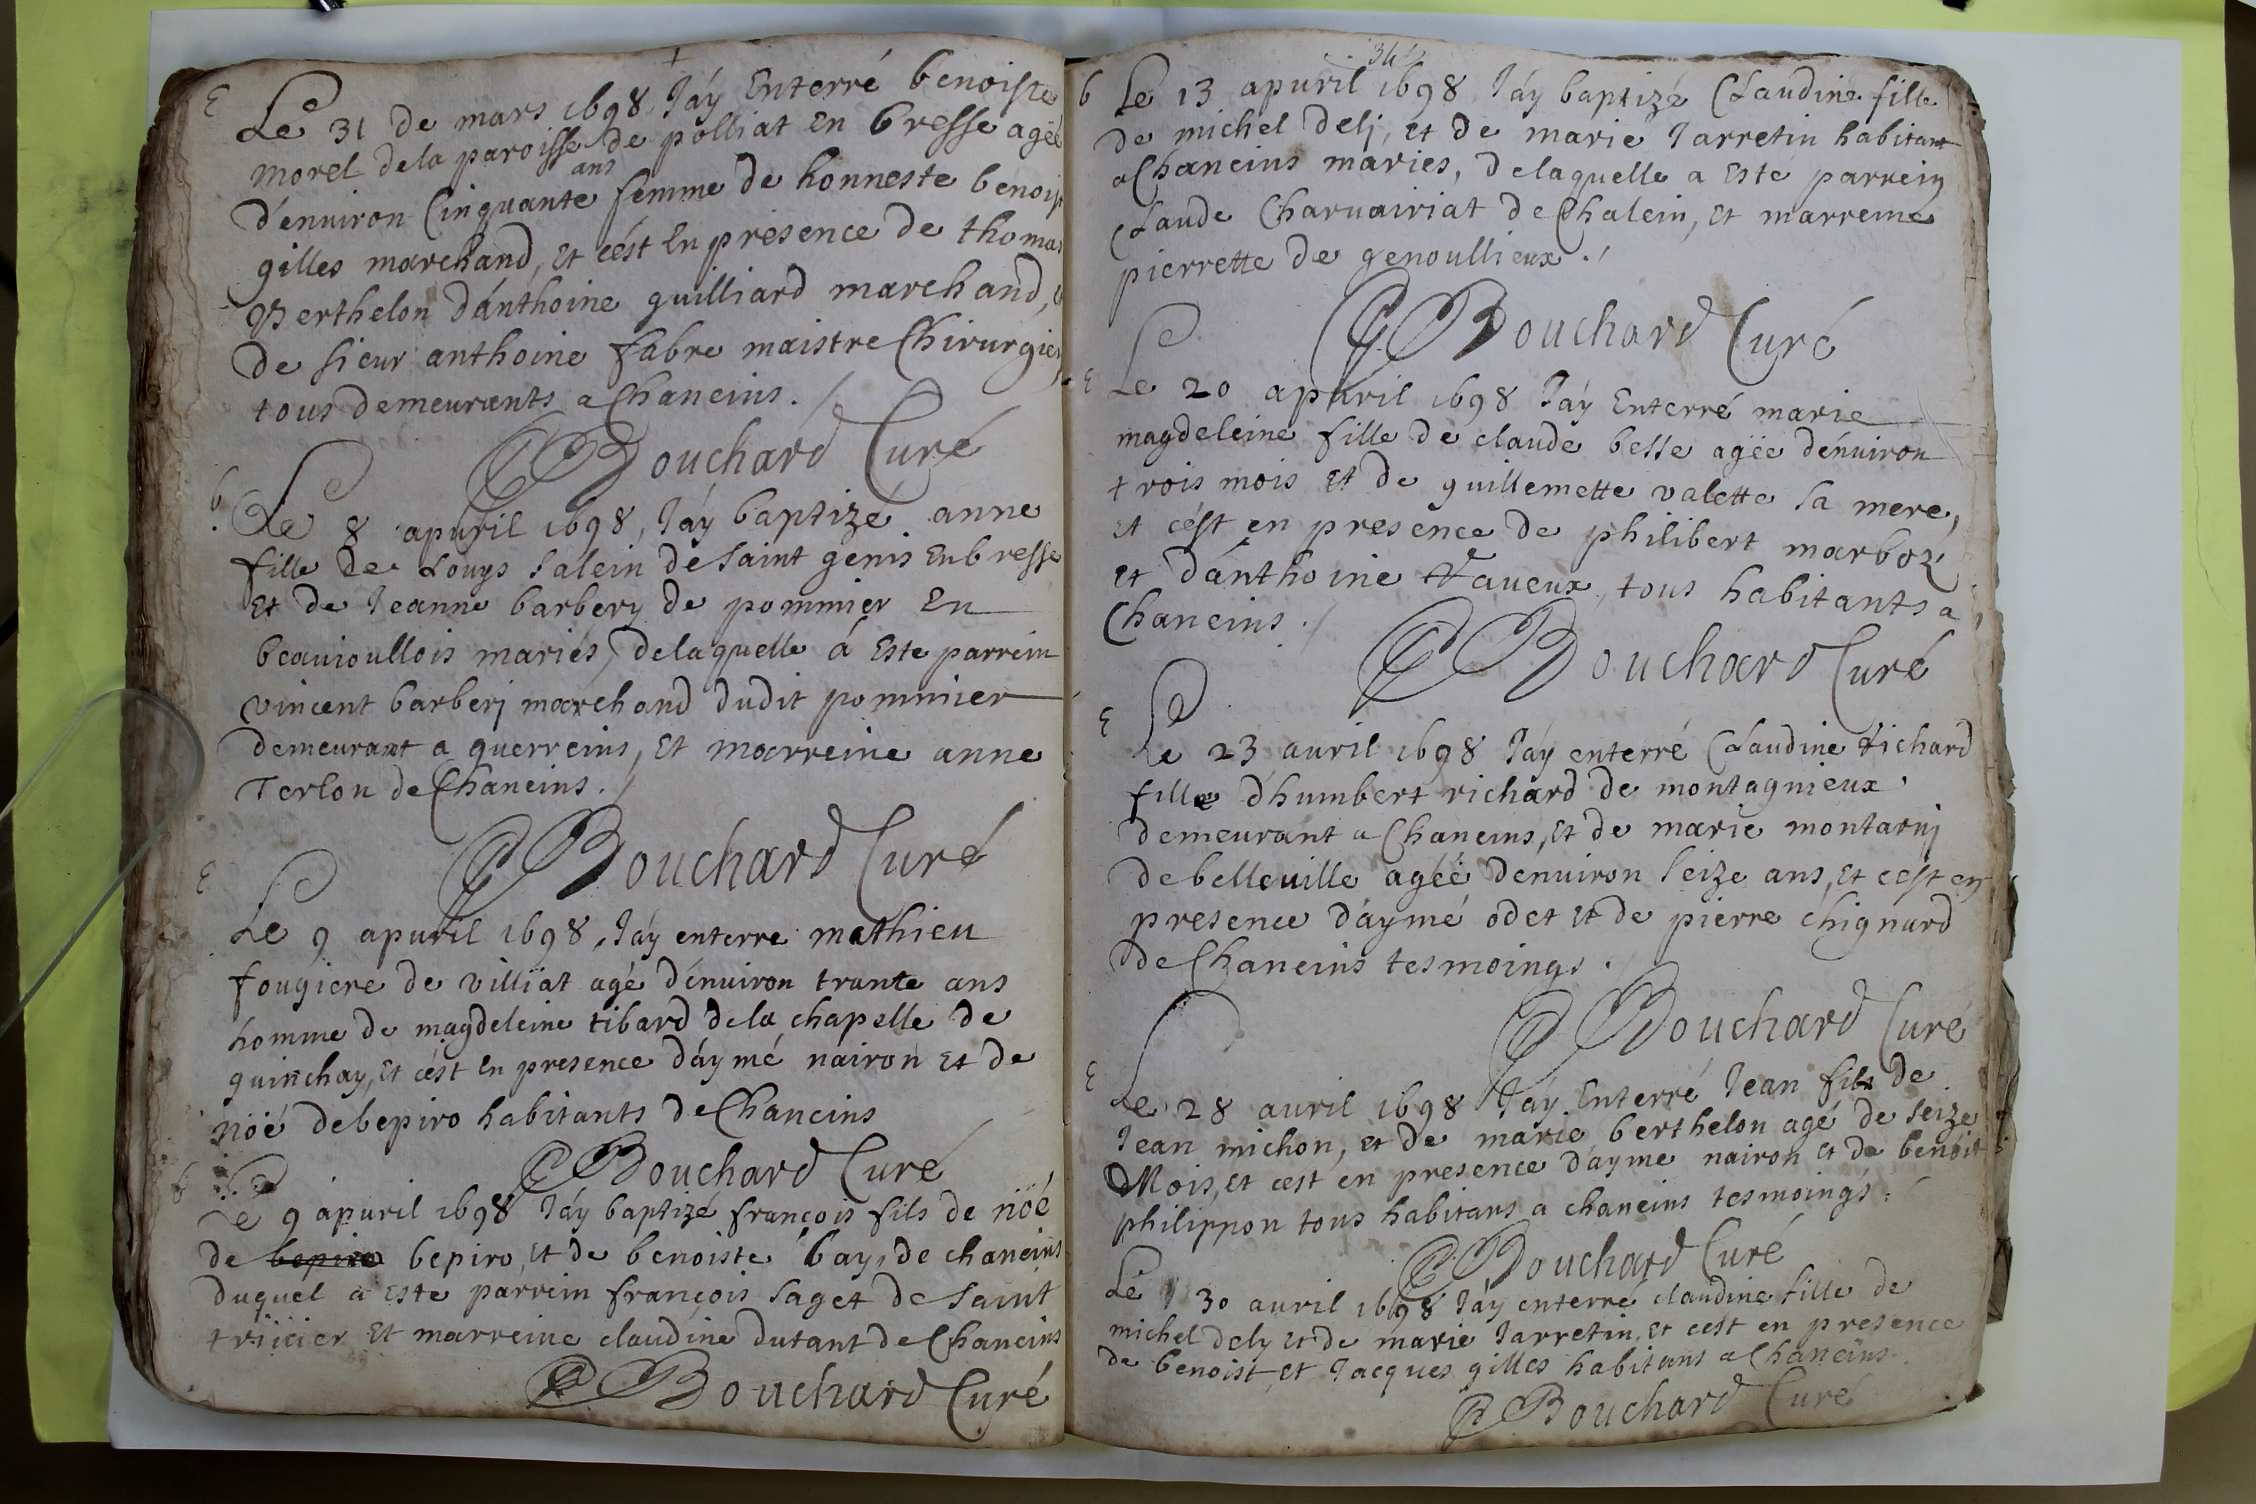 E
Le 31 de mars 1698 Jáy Enterré benoiste
morel dela paroisse de polliat en bresse agée
ans
dénuiron Cinquante femme de honneste benoist
gilles marchand, et cést En presence de thomas
Berthelon dánthoine guilliard marchand, et
de sieur anthoine fabre maistre Chirurgien
tous demeurants a Chaneins.
Bouchard Curé
b
Le 8 apuril 1698, Jáy baptizé anne
fille de Louys Salein de saint genis En bresse
Et de Jeanne barbery de pommier En
beauioullois mariés, delaquelle á Este parrein
vincent barberj marchand dudit pommier
demeurant a guerreins, Et marreine anne
Terlon de Chaneins.
Bouchard Curé
E
Le 9 apuril 1698, Jáy enterre mathieu
fougiere de villiat agé dénuiron trante ans
homme de magdeleine tibard dela chapelle de
guinchay, Et cést En presence dáymé nairon Et de
nöé debepiro habitants de Chaneins
Bouchard Curé
b
Le 9 ápuril 1698 Jáy baptizé françois fils de nöé
de bepiro bepiro, Et de benoiste bay, de chaneins
duquel a Este parrein françois saget de saint
triuier Et marreine claudine dutant de Chaneins
Bouchard Curé
34
b Le 13 apuril 1698 Jáy baptizé Claudine fille
de michel delj, et de marie Jarretin habitant
a Chaneins mariés, delaquelle a Esté parrein
Claude Charuairiat de Chalein, Et marreine
pierrette de genoullieux.
Bouchard Curé
E Le 20 apuril 1698 Jáy Enterré marie
magdeleine fille de claude besse agée dénuiron
trois mois Et de guillemette valette sa mere,
Et cést en presence de philibert marboz
Et dánthoine Raueux, tous habitants a
Chaneins.
Bouchard Curé
E
Le 23 auril 1698 Jáy enterré Claudine Richard
fille dhumbert richard de montagnieux
demeurant a Chaneins, Et de marie montarnj
de belleuille agéé denuiron seize ans, Et cést en
presence dáymé odet Et de pierre chignard
de Chaneins tesmoings.
Bouchard Curé
E
Le 28 auril 1698 Jáy Enterré Jean fils de
Jean michon, et de marie berthelon agé de seize
Mois, et cest en presence dayme nairon et de benoit
philippon tous habitans a chaneins tesmoings.
Bouchard Curé
Le 30 auril 1698 Jáy enterré claudine fille de
michel dely et de marie Jarretin, et cest en presence
de benoist, et Jacques gilles habitans a Chaneins.
Bouchard Curé